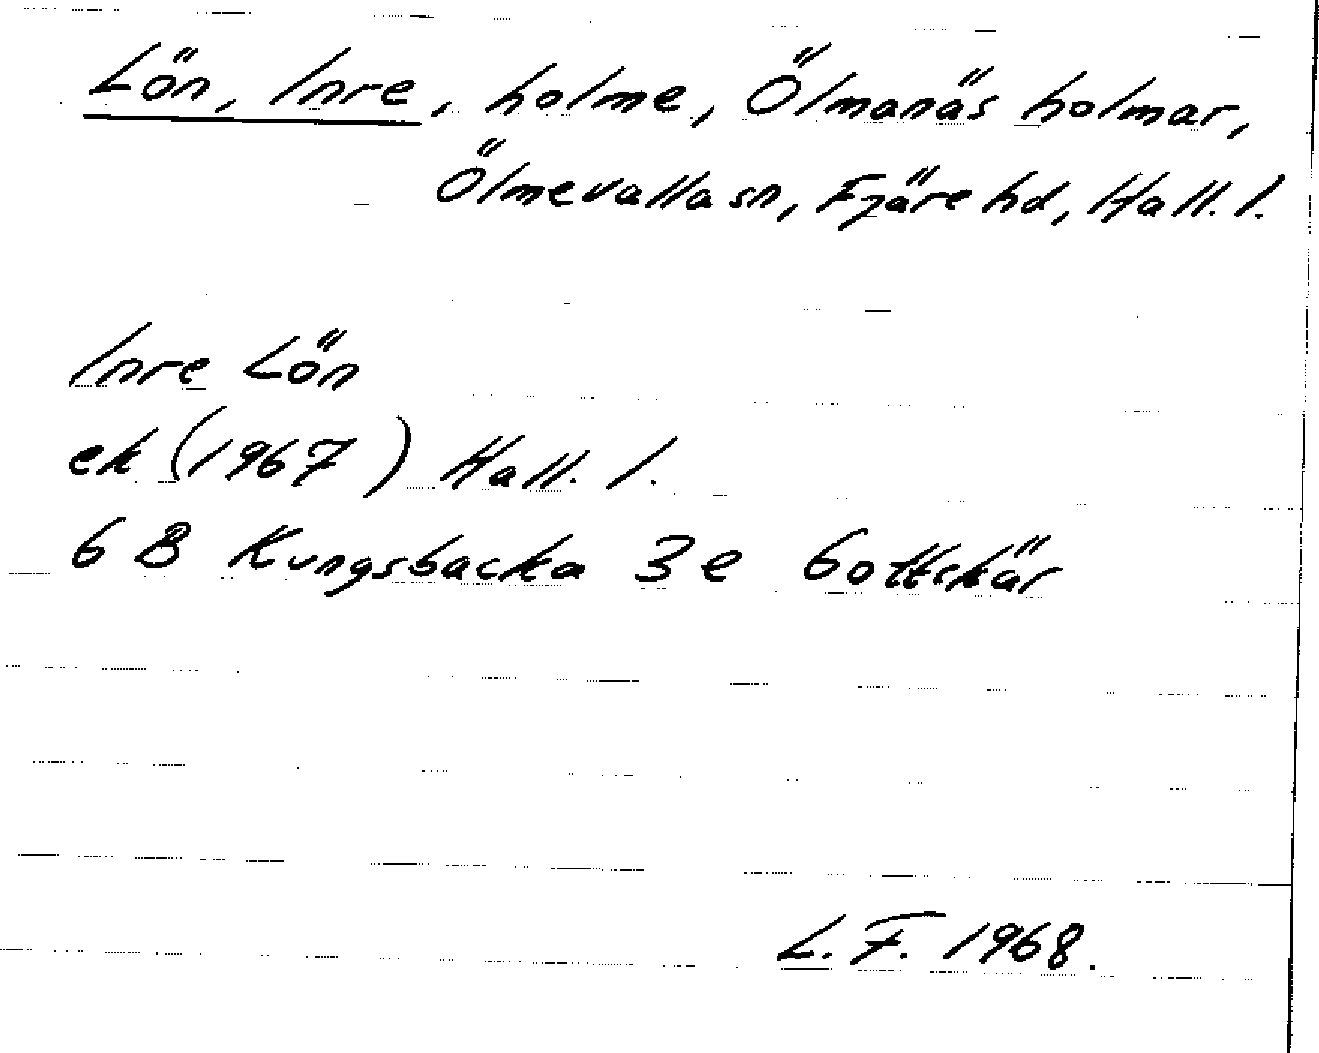 Lön, Inre, holme, Ölmanäs holmar,
Ölmevalla sn, Fjäre hd, Hall. l.
Inre Lön
ek (1967) Hall. l.
6 B Kungsbacka 3 e Gottskär
L. F. 1968.